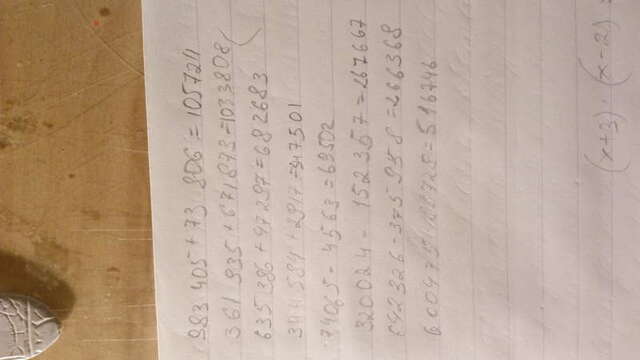 983 405 + 73 806 = 105724
361 935 + 671873 = 1033808
635 386 + 47297 = 682683
344584 + 2917 = 347501
74065 - 4563 = 69502
320024 - 152357 = 267667
642 326 - 375958 = 266368
= 516746
(x+3) · (x-2) =